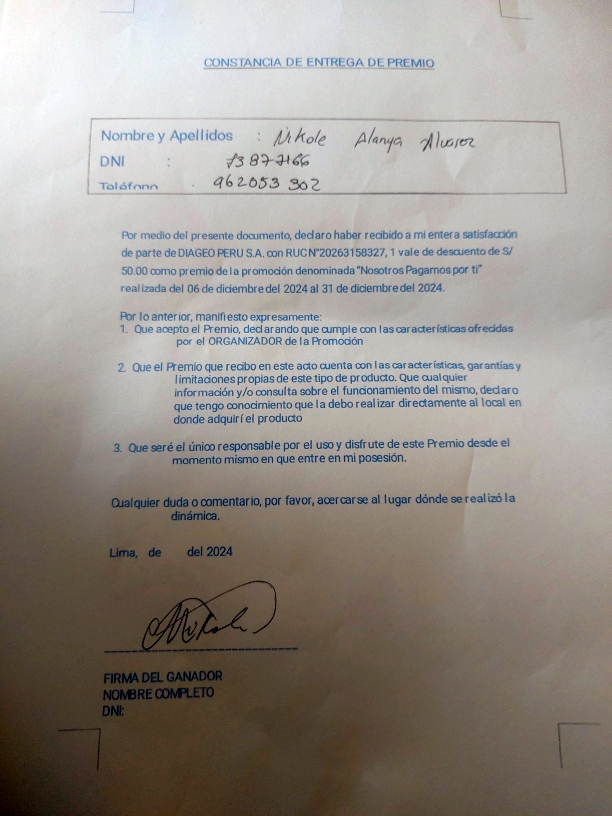 CONSTANCIA DE ENTREGA DE PREMIO
Nombre y Apellidos : Nikole Alanya Alvarez
DNI : 73877166
Teléfono : 962053 302
Por medio del presente documento, declaro haber recibido a mi entera satisfacción
de parte de DIAGEO PERU S.A. con RUC N°20263158327, 1 vale de descuento de S/
50.00 como premio de la promoción denominada "Nosotros Pagamos por ti"
realizada del 06 de diciembre del 2024 al 31 de diciembre del 2024.
Por lo anterior, manifiesto expresamente:
1. Que acepto el Premio, declarando que cumple con las características ofrecidas
por el ORGANIZADOR de la Promoción
2. Que el Premio que recibo en este acto cuenta con las características, garantías y
limitaciones propias de este tipo de producto. Que cualquier
información y/o consulta sobre el funcionamiento del mismo, declaro
que tengo conocimiento que la debo realizar directamente al local en
donde adquirí el producto
3. Que seré el único responsable por el uso y disfrute de este Premio desde el
momento mismo en que entre en mi posesión.
Cualquier duda o comentario, por favor, acercarse al lugar dónde se realizó la
dinámica.
Lima, de del 2024
FIRMA DEL GANADOR
NOMBRE COMPLETO
DNI: